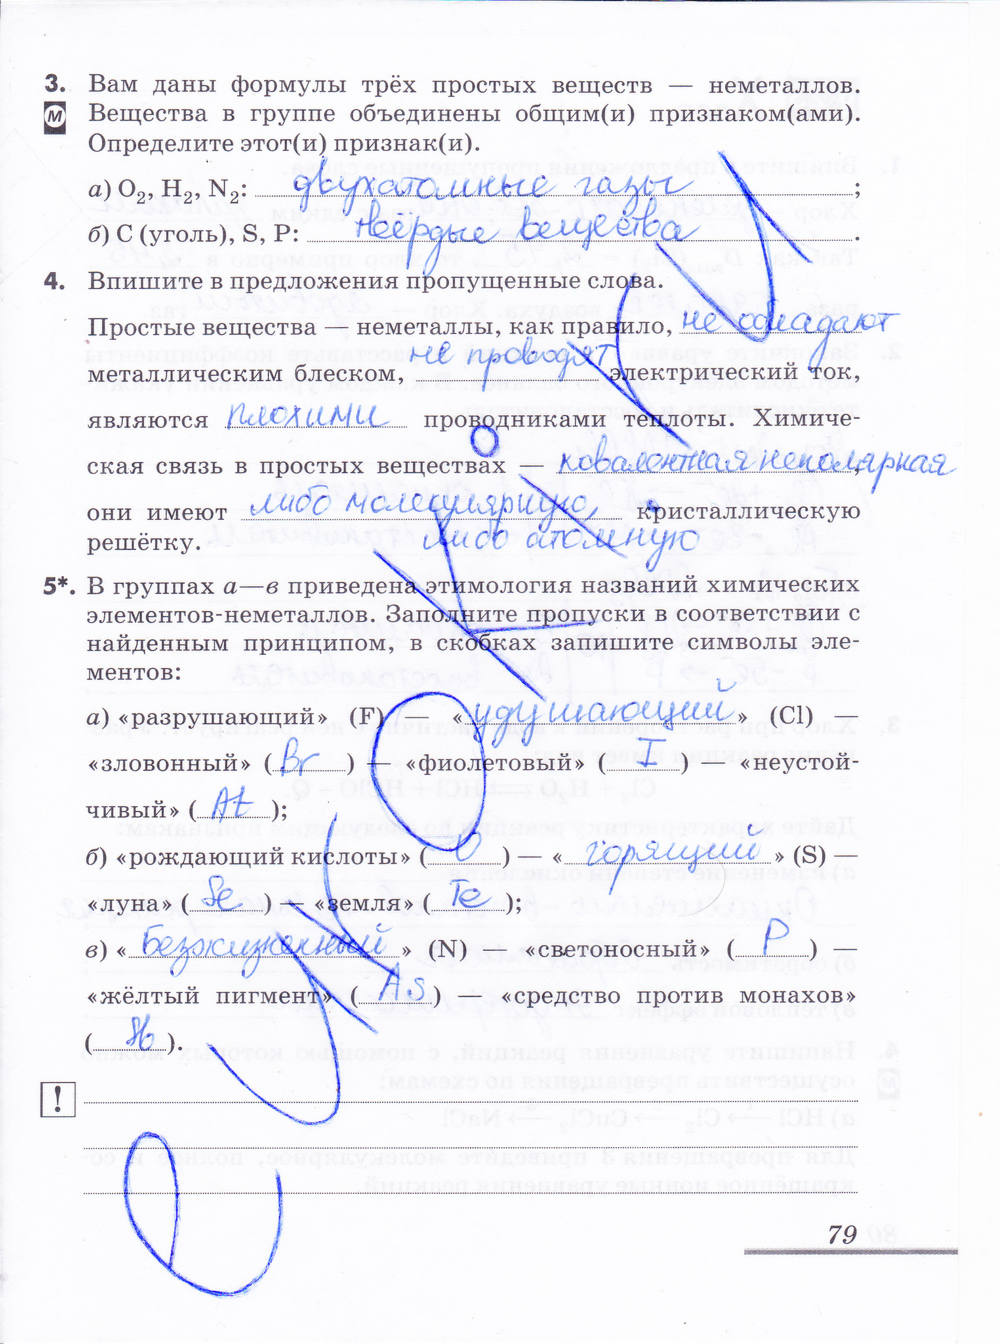 3. Вам даны формулы трёх простых веществ — неметаллов.
М Вещества в группе объединены общим(и) признаком(ами).
Определите этот(и) признак(и).
а) O₂, H₂, N₂: двухатомные газы ;
б) C (уголь), S, P: твёрдые вещества .
4. Впишите в предложения пропущенные слова.
Простые вещества — неметаллы, как правило, не обладают
металлическим блеском, не проводят электрический ток,
являются плохими проводниками теплоты. Химиче-
ская связь в простых веществах — ковалентная неполярная,
они имеют либо молекулярную, кристаллическую
решётку. либо атомную
5*. В группах а—в приведена этимология названий химических
элементов-неметаллов. Заполните пропуски в соответствии с
найденным принципом, в скобках запишите символы эле-
ментов:
а) «разрушающий» (F) — «удушающий» (Cl) —
«зловонный» (Br) — «фиолетовый» (I) — «неустой-
чивый» (At);
б) «рождающий кислоты» (O) — «горящий» (S) —
«луна» (Se) — «земля» (Te);
в) «Безжизненный» (N) — «светоносный» (P) —
«жёлтый пигмент» (As) — «средство против монахов»
(Sb).
!
79